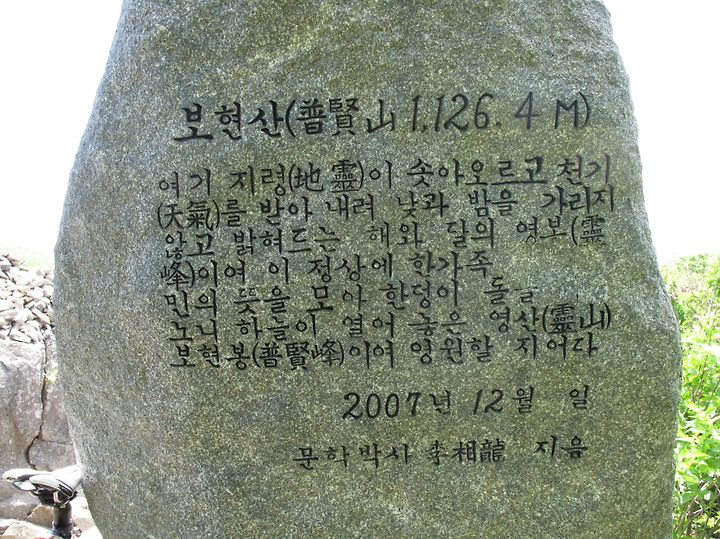 보현산(普賢山 1,126.4 M)
여기 지령(地靈)이 솟아오르고 천기
(天氣)를 받아 내려 낮과 밤을 가리지
않고 밝혀드는 해와 달의 영봉(靈
峰)이여 이 정상에 한가족
민의 뜻을 모아 한덩이 돌을
노니 하늘이 열어 놓은 영산(靈山)
보현봉(普賢峰)이여 영원할 지어다
2007년 12월 일
문학박사 李相龍 지음